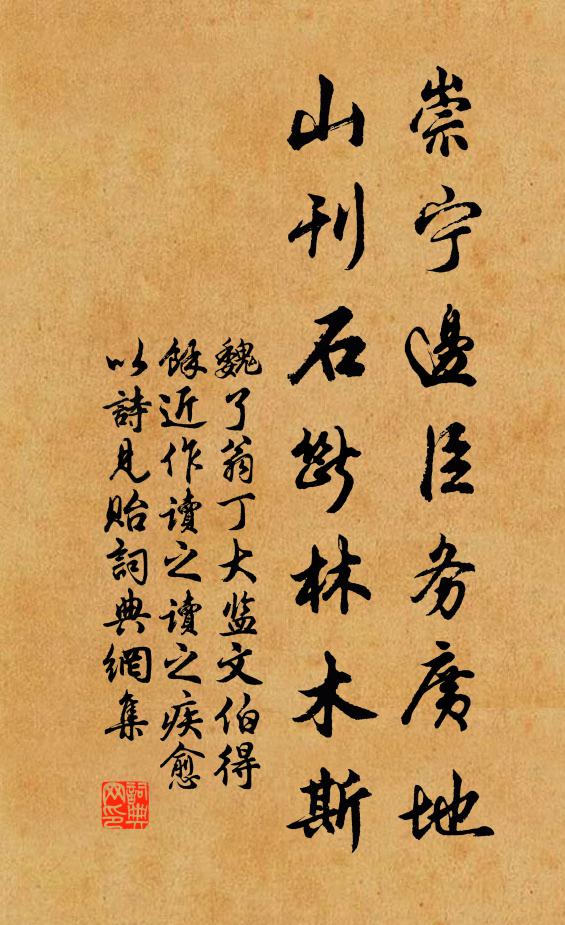 崇宁邊臣务廣地
山刊石斷林木斯
魏了翁丁大监文伯得
餘近作读之读之疾愈
以詩見貽詞典網集
詞典
网印